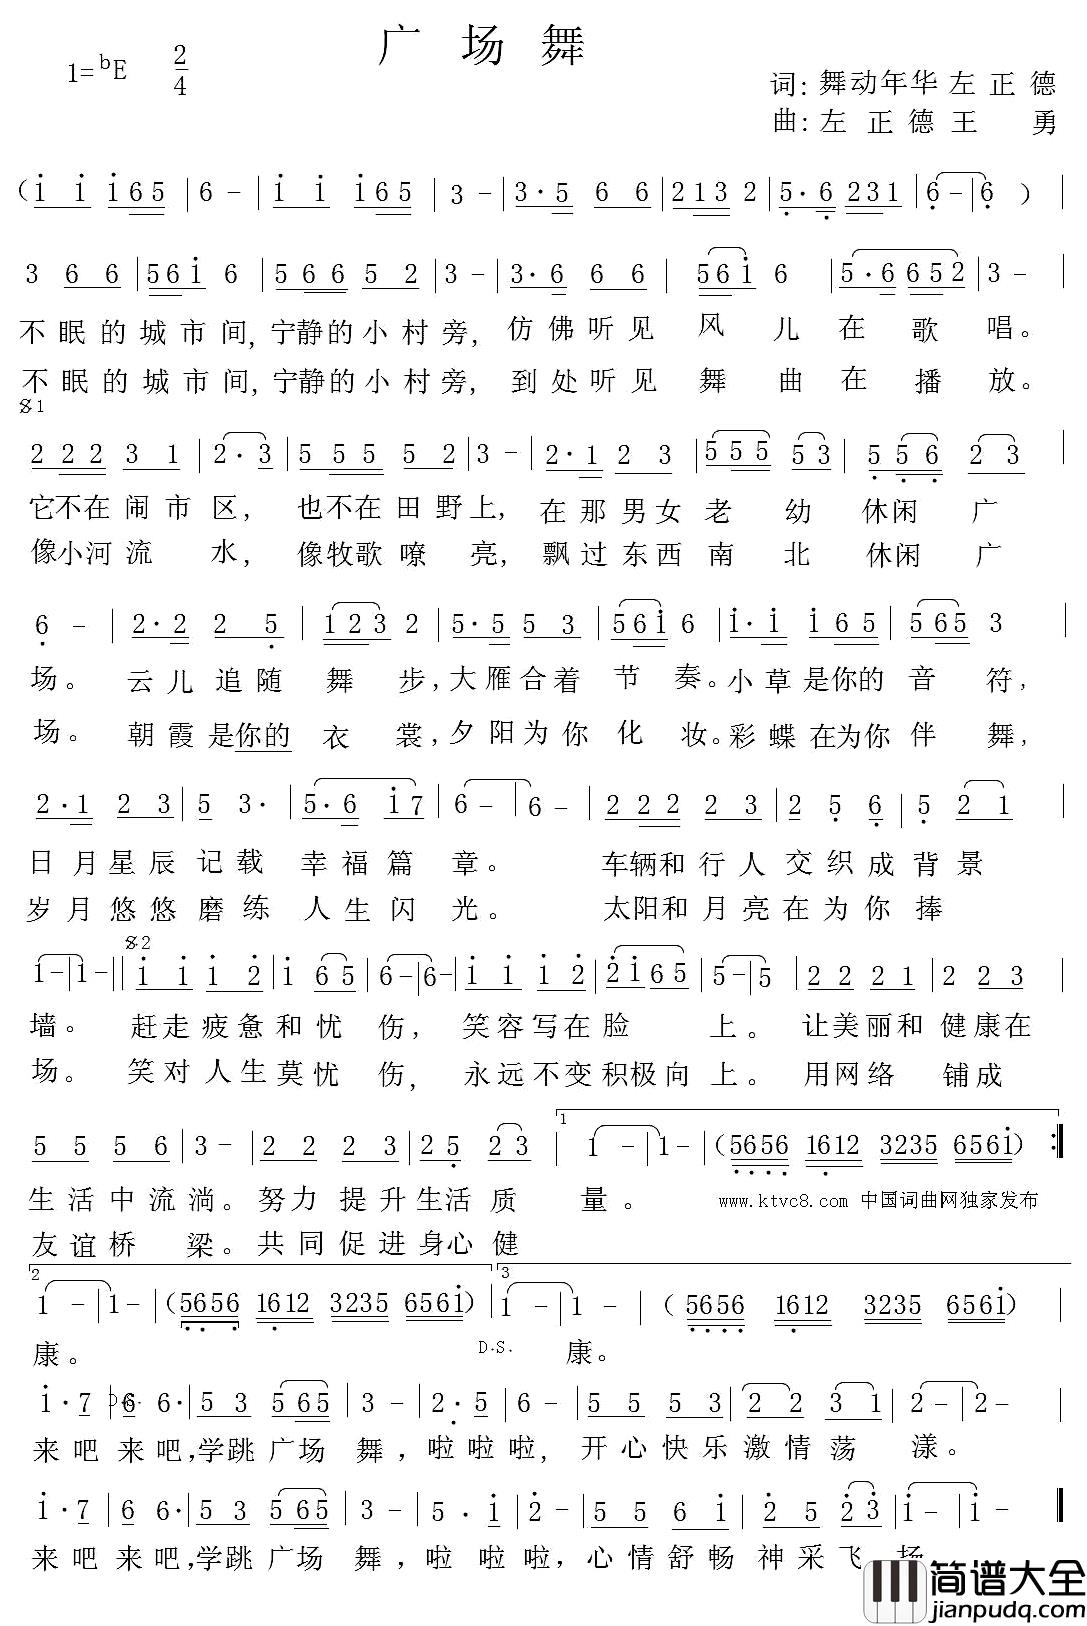 广场舞
1=bE 2/4
词: 舞动年华 左正德
曲: 左正德 王勇
(i i i65 | 6 - | i i i65 | 3 - | 3·5 6 6 | 2132 | 5·6 231 | 6 - | 6 )
3 6 6 | 56i 6 | 566 5 2 | 3 - | 3·6 6 6 | 56i 6 | 5·6652 | 3 -
不眠的城市间,宁静的小村旁,仿佛听见风儿在歌唱。
不眠的城市间,宁静的小村旁,到处听见舞曲在播放。
𝄋1
222 3 1 | 2·3 | 555 5 2 | 3 - | 2·1 2 3 | 555 53 | 556 2 3
它不在闹市区,也不在田野上,在那男女老幼休闲广
像小河流水,像牧歌嘹亮,飘过东西南北休闲广
6 - | 2·2 2 5 | 123 2 | 5·5 5 3 | 56i 6 | i·i i65 | 565 3
场。云儿追随舞步,大雁合着节奏。小草是你的音符,
场。朝霞是你的衣裳,夕阳为你化妆。彩蝶在为你伴舞,
2·1 2 3 | 5 3· | 5·6 i7 | 6 - | 6 - | 222 2 3 | 2 5 6 | 5 2 1
日月星辰记载幸福篇章。车辆和行人交织成背景
岁月悠悠磨练人生闪光。太阳和月亮在为你捧
𝄋2
1 - | 1 - || i i i 2 | i 6 5 | 6 - | 6 - | i i i 2 | 2i65 | 5 - | 5 | 2 2 2 1 | 2 2 3
墙。赶走疲惫和忧伤,笑容写在脸上。让美丽和健康在
场。笑对人生莫忧伤,永远不变积极向上。用网络铺成
5 5 5 6 | 3 - | 2 2 2 3 | 2 5 2 3 | 1 1 - | 1 - | (5656 1612 3235 656i) :|
生活中流淌。努力提升生活质量。www.ktvc8.com 中国词曲网独家发布
友谊桥梁。共同促进身心健
2 1 - | 1 - | (5656 1612 3235 656i) | 3 1 - | 1 - | (5656 1612 3235 656i)
康。D.S. 康。
i·7 | 6 6· | 5 3 565 | 3 - | 2·5 | 6 - | 5 5 5 3 | 2 2 3 1 | 2 - | 2 -
来吧来吧,学跳广场舞,啦啦啦,开心快乐激情荡漾。
i·7 | 6 6· | 5 3 565 | 3 - | 5·i | 2 - | 5 5 6 i | 2 5 2 3 | i - | i -
来吧来吧,学跳广场舞,啦啦啦,心情舒畅神采飞
简谱大全
jianpudq.com